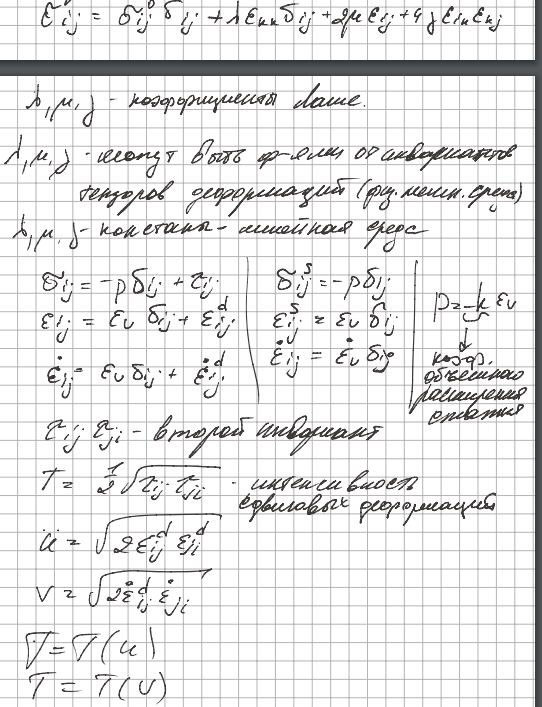 σij = σ°ij δij + λ εkk δij + 2μ εij + 4γ εik εkj
λ, μ, γ - коэффициенты Ламе.
λ, μ, γ - могут быть ф-ями от инвариантов
тензоров деформаций (физ. нелин. среда)
λ, μ, γ - констаны - линейная среда
σij = -pδij + τij
εij = εv δij + ε^d ij
ε̇ij = εv δij + ε̇^d ij
σ^s ij = -pδij
ε^s ij = εv δij
ε̇ij = ε̇v δij
коэф.
объемного
расширения
сжатия
τij τji - второй инвариант
T = 1/2 √(τij τji) - интенсивность
сдвиговых деформаций
u = √(2ε^d ij ε^d ji)
v = √(2ε̇^d ij ε̇ji)
T = T(u)
T = T(v)